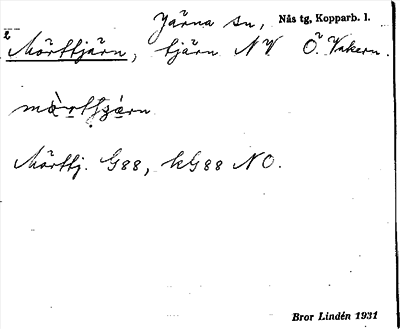 Järna sn, Nås tg, Kopparb. l.
2 Mörttjärn, tjärn NV Ö. Vakern.
Mörttj. G88, kG88 NO.
Bror Lindén 1931